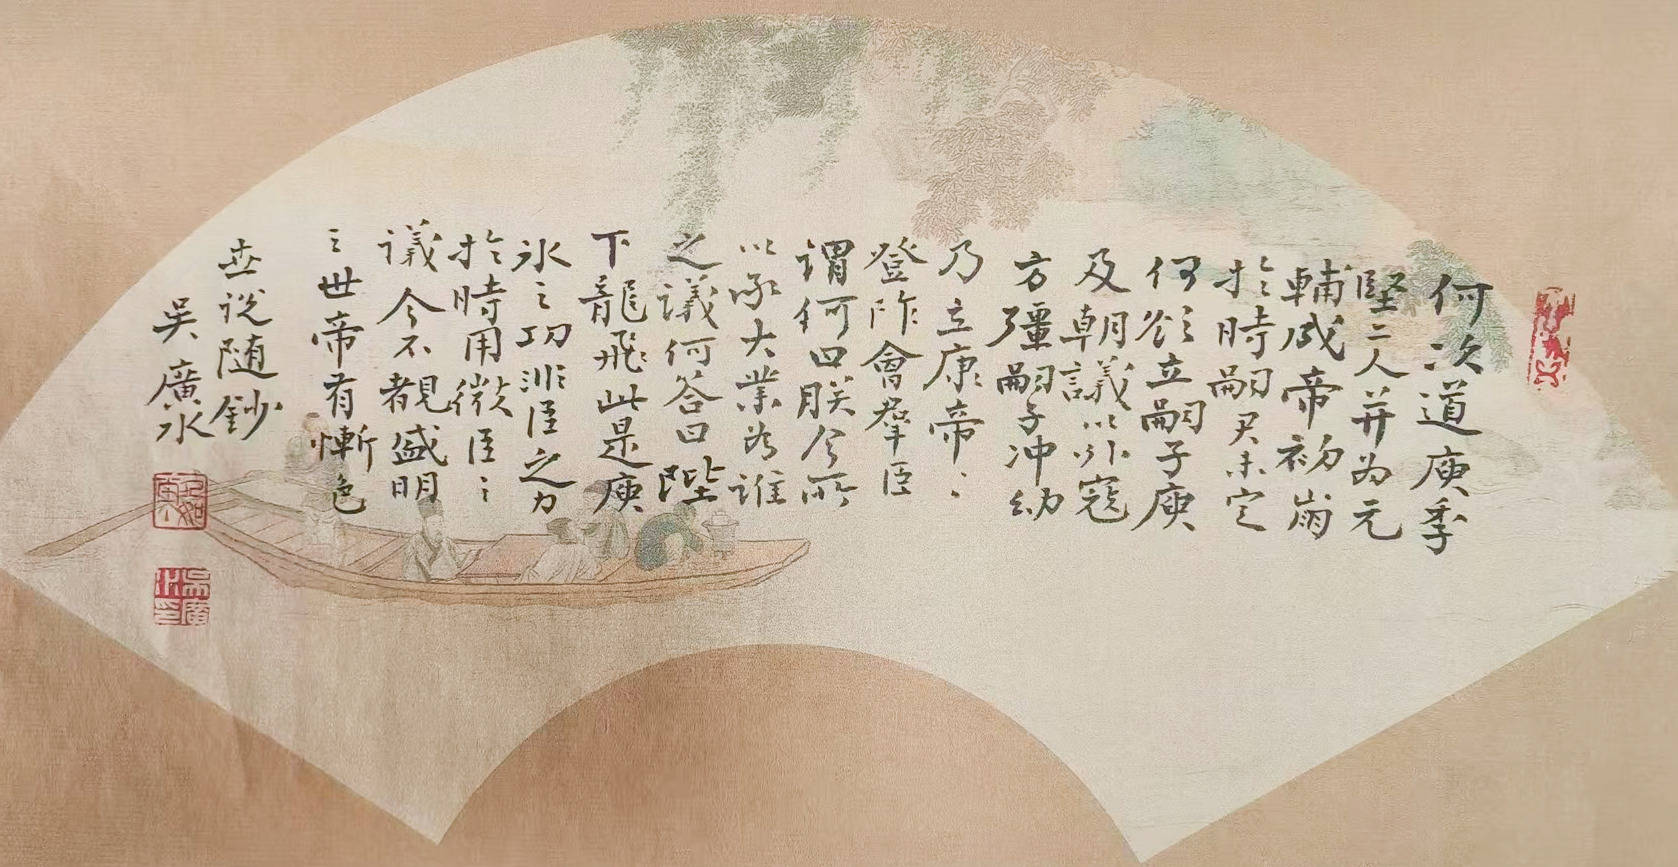 何次道庾季
堅二人并为元
輔成帝初崩
扵時嗣君未定
何欲立嗣子庾
及朝議以外寇
方彊嗣子冲幼
乃立康帝〻
登阼會羣臣
謂何曰朕今所
以承大業为誰
之議何答曰陛
下龍飛此是庾
冰之功非臣之力
扵時用微臣之
議今不覩盛明
之世帝有慚色
世说随鈔
吴廣水